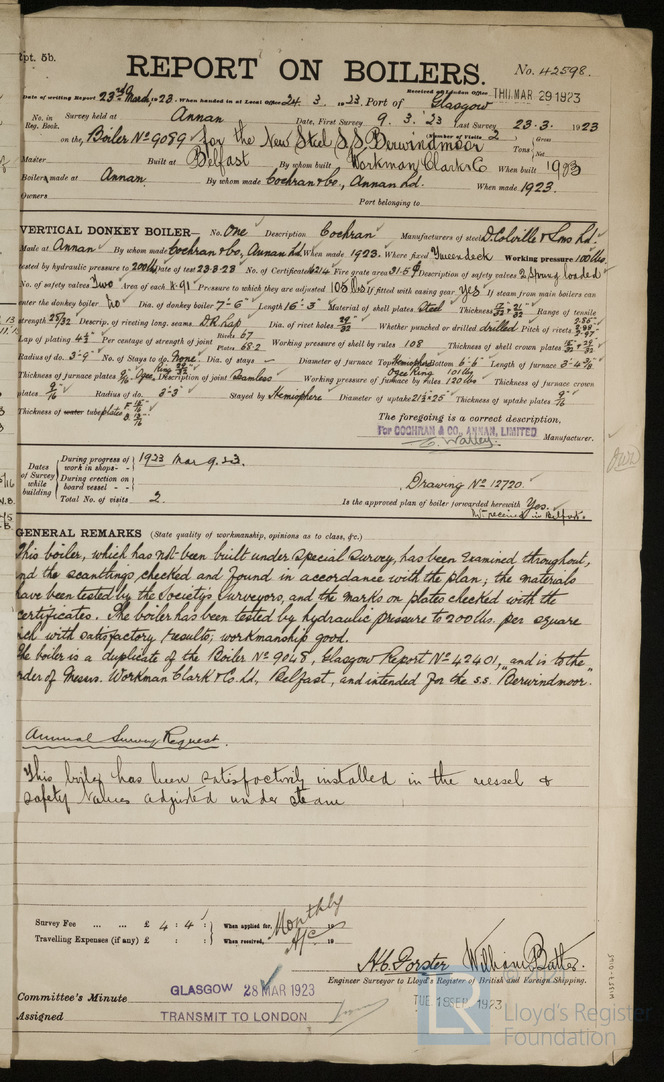 Rpt. 5b.
REPORT ON BOILERS.
No. 42598.
Received at London Office THU. MAR 29 1923
Date of writing Report 23rd March, 1923. When handed in at Local Office 24. 3. 1923. Port of Glasgow
No. in Reg. Book. Survey held at Annan Date, First Survey 9. 3. '23 Last Survey 23. 3. 1923
(Number of Visits 2)
on the, Boiler No 9089 for the New Steel S.S. Berwindmoor Tons { Gross Net
Master Built at Belfast By whom built Workman, Clark & Co When built 1923
Boilers made at Annan. By whom made Cochran & Co., Annan Ltd. When made 1923.
Owners Port belonging to
VERTICAL DONKEY BOILER— No. One Description Cochran Manufacturers of steel D. Colville & Sons Ltd.
Made at Annan By whom made Cochran & Co, Annan Ltd When made 1923. Where fixed Tweendeck Working pressure 100 lbs.
tested by hydraulic pressure to 200 lbs Date of test 23.3.23 No. of Certificate 6214 Fire grate area 31.5 Description of safety valves 2, Spring loaded
No. of safety valves Two Area of each Pressure to which they are adjusted 105 lbs If fitted with casing gear Yes If steam from main boilers can
enter the donkey boiler No Dia. of donkey boiler 7'-6" Length 16'-3" Material of shell plates Steel Thickness Range of tensile
strength Descrip. of riveting long. seams D.R. Lap Dia. of rivet holes 29/32 Whether punched or drilled drilled Pitch of rivets
Lap of plating Per centage of strength of joint Rivets 67 Plates 68.2 Working pressure of shell by rules 108 Thickness of shell crown plates
Radius of do. 3'-9" No. of Stays to do. None. Dia. of stays — Diameter of furnace Top Hemisphere Bottom 6'-6" Length of furnace
Thickness of furnace plates Ogee Ring Description of joint Seamless Working pressure of furnace by rules Ogee Ring 101 lbs 120 lbs Thickness of furnace crown
plates 9/16" Radius of do. 3'-3" Stayed by Hemisphere Diameter of uptake Thickness of uptake plates 9/16
Thickness of water tube plates
The foregoing is a correct description,
For COCHRAN & CO., ANNAN, LIMITED
Manufacturer.
Dates of Survey while building
During progress of work in shops - - 1923 Mar 9. 23.
During erection on board vessel - -
Total No. of visits 2.
Drawing No 12720.
Is the approved plan of boiler forwarded herewith Yes.
Not received in Belfast.
GENERAL REMARKS (State quality of workmanship, opinions as to class, &c.)
This boiler, which has not been built under special survey, has been examined throughout,
and the scantlings checked and found in accordance with the plan; the materials
have been tested by the Society's Surveyors, and the marks on plates checked with the
certificates. The boiler has been tested by hydraulic pressure to 200 lbs. per square
inch with satisfactory results; workmanship good.
The boiler is a duplicate of the Boiler No 9048, Glasgow Report No 42401, and is to the
order of Messrs. Workman Clark & Co. Ld, Belfast, and intended for the s.s. "Berwindmoor."
Annual Survey Request.
This boiler has been satisfactorily installed in the vessel &
safety valves adjusted under steam
Survey Fee ... ... £ 4 : 4 : When applied for, Monthly A/c 19
Travelling Expenses (if any) £ : : When received, 19
A.C. Forster William Butler.
Engineer Surveyor to Lloyd's Register of British and Foreign Shipping.
Committee's Minute GLASGOW 28 MAR 1923
TUE. 18 SEP. 1923
Assigned TRANSMIT TO LONDON
LR
Lloyd's Register
Foundation
W1557-0165